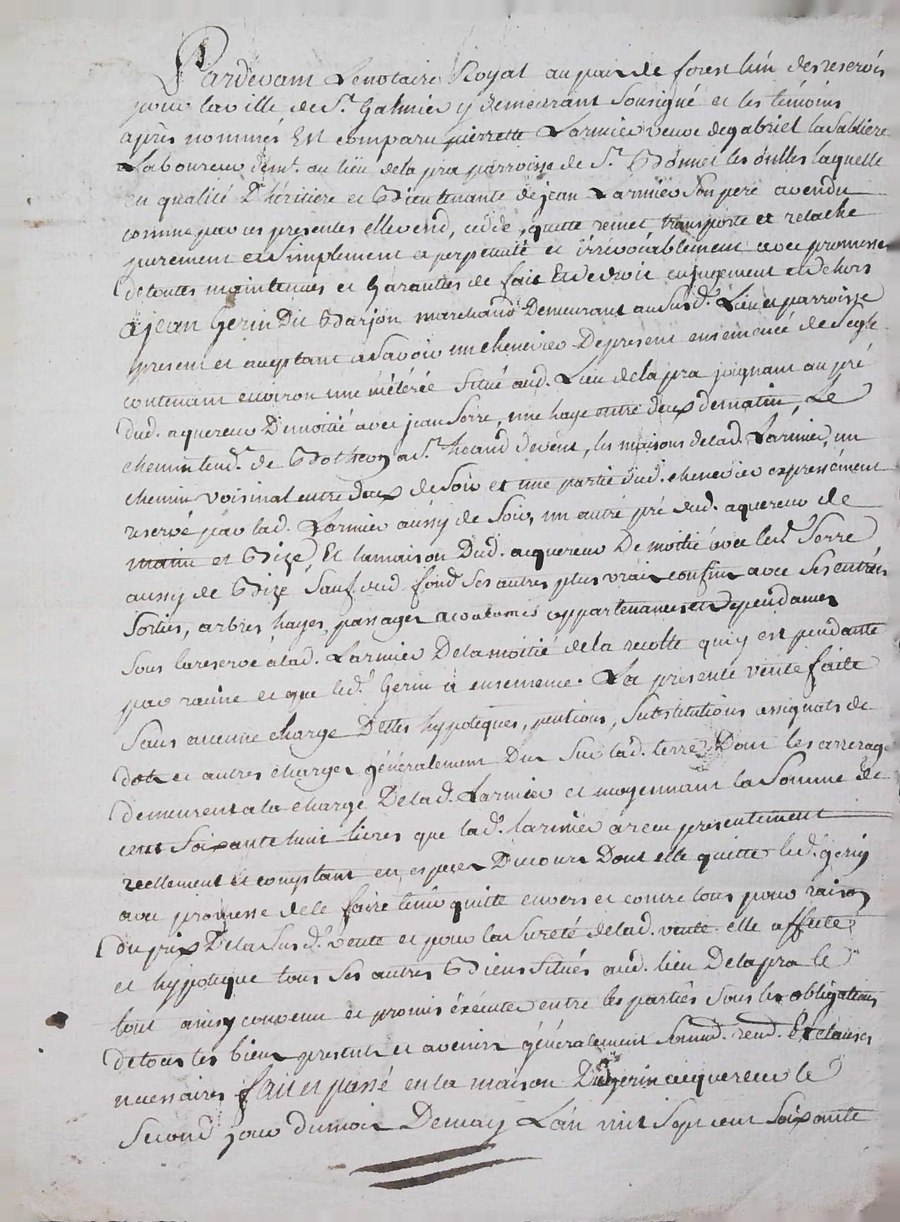 Pardevant Le notaire Royal au pais de forest lun des reservés
pour la ville de St. Galmier y demeurant Soussigné et les témoins
après nommés Est comparu pierrette Larmier veuve de gabriel la Sabliere
Laboureur demt. au lieu de la pra parroisse de St. Bonnet les oulles laquelle
en qualité D'héritiere et Bientenante de jean Larmier Son pere a vendu
comme par ces presentes elle vend, cedde, quitte remet transporte et relache
purement et Simplement a perpetuité et irrévocablement avec promesse
de toutes maintenues et Garanties de fait Et de droit en jugement et dehors
à jean Gerin Dit Barjon marchand Demeurant au Susd. Lieu et parroisse
present et acceptant a Savoir un chenevier De present ensemencé de Segle
contenant environ une métérée Situé aud. Lieu de la pra joignant au pré
dud. aquereur De moitié avec jean Serre, une haye entre deux de matin, Le
chemin tendt. de Botheon a St. heand de vent, les maisons de lad. Larmier, un
chemin voisinal entre deux de Soir et une partie dud. chenevier expressément
reservé par lad. Larmier aussy de Soir, un autre pré dud. aquereur de
matin et Bize, Et la maison Dud. acquereur De moitié avec led. Serre
aussy de Bize Sauf dud. fond Ses autres plus vrais confins avec Ses entrés
Sorties, arbres, hayes, passages acoutumés appartenances et Dependances
Sous la reserve à lad. Larmier De la moitié de la recolte qui y est pendante
par racine et que led. Gerin à ensemencé. La presente vente faite
Sans aucune charge Dettes hypoteques, pentions, Substitutions assignats de
dots et autres charges généralement Dus Sur lad. terre Dont les arrerages
demeurent a la charge De la d. Larmier et moyennant la Somme de
cent Soixante huit livres que la d. larmier a recu presentement
reellement et comptant en especes Du cours Dont elle quitte led. gerin
avec promesse de le faire tenir quitte envers et contre tous pour raison
du prix De la Susd. vente et pour la Sureté de lad. vente elle affecte
et hypoteque tous Ses autres Biens Situés aud. lieu De la pra le
tout ainsy convenu et promis éxécuter entre les parties Sous les obligations
de tous les biens presents et avenirs généralement Soumd. rend. Et clauses
necessaires fait et passé en la maison Dud. gerin acquereur le
Second jour du mois De may L'an mil Sept cent Soixante